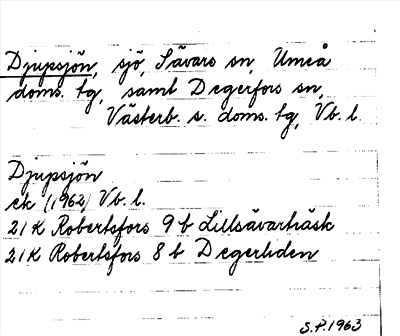 Djupsjön, sjö, Sävars sn, Umeå
doms. tg, samt Degerfors sn,
Västerb. s. doms. tg, Vb. l.
Djupsjön
ek (1962) Vb. l.
21 K Robertsfors 9 b Lillsävarträsk
21 K Robertsfors 8 b Degerliden
S.P. 1963